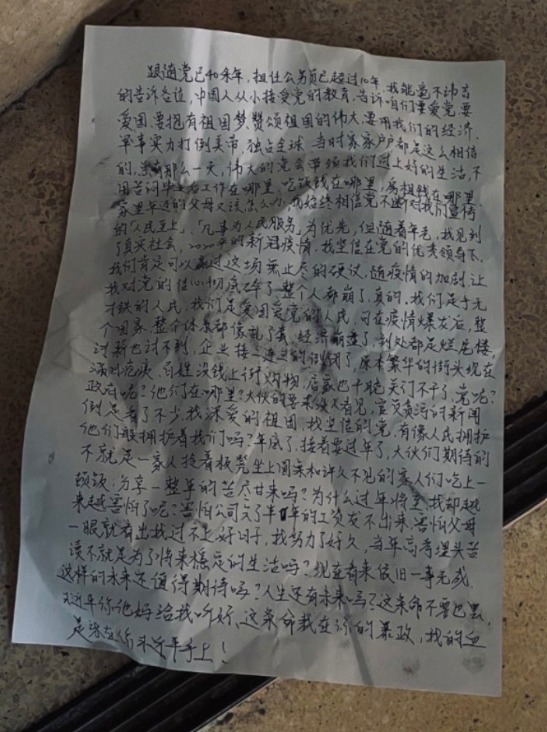 跟随党已40余年，担任公务员已超过10年，我能毫不讳言
的告诉各位，中国人从小接受党的教育，告诉咱们要爱党要
爱国要抱有祖国梦，赞颂祖国的伟大，要用我们的经济、
军事实力打倒美帝、独占全球，当时家家户户都是这么相信
的，那么一天，伟大的党会带给我们过上好的生活，不
用苦问毕业后工作在哪里，吃饭钱在哪里，房租钱在哪里，
家里年迈的父母又该怎么办，我始终相信党不断对我们宣传
的「人民至上」，「凡事为人民服务」为优先，但随着年老，我见到
了真实社会，2020年的新冠疫情，我坚信在党的优秀领导下，
我们肯定可以赢过这场无止尽的硬仗，随疫情的加剧让
我对党的信心彻底碎了，整个人都崩了，真的，我们是手无
寸铁的人民，我们是爱国爱党的人民，可在疫情爆发后，整
个国家，整个体系都像乱了套，经济崩溃了，到处都是烂尾楼，
讨薪也讨不到，企业接一连三的倒闭了，原本繁华的街头现在
满目疮痍，百姓没钱上街购物，店家也干脆关门不干了，党呢？
政府呢？他们在哪里？大伙的要求没人看见，官员贪污的新闻
倒是看了不少，我深爱的祖国，我坚信的党，有像人民拥护
他们般拥护着我们吗？年底了，接着要过年了，大伙们期待的
不就是一家人捡着板凳坐上圆桌和许久不见的家人们吃上一
顿饭，分享一整年的苦尽甘来吗？为什么过年将至我却越
来越害怕了呢？害怕公司欠了半年的工资发不出来，害怕父母
一眼就看出我过不上好日子，我努力了好久，当年高考埋头苦
读不就是为了将来稳定的生活吗？现在看来依旧一事无成，
这样的未来还值得期待吗？人生还有未来吗？这条命不要也罢，
习近平你他妈给我听好，这条命我在你的暴政，我的血
是沾在你习近平手上！